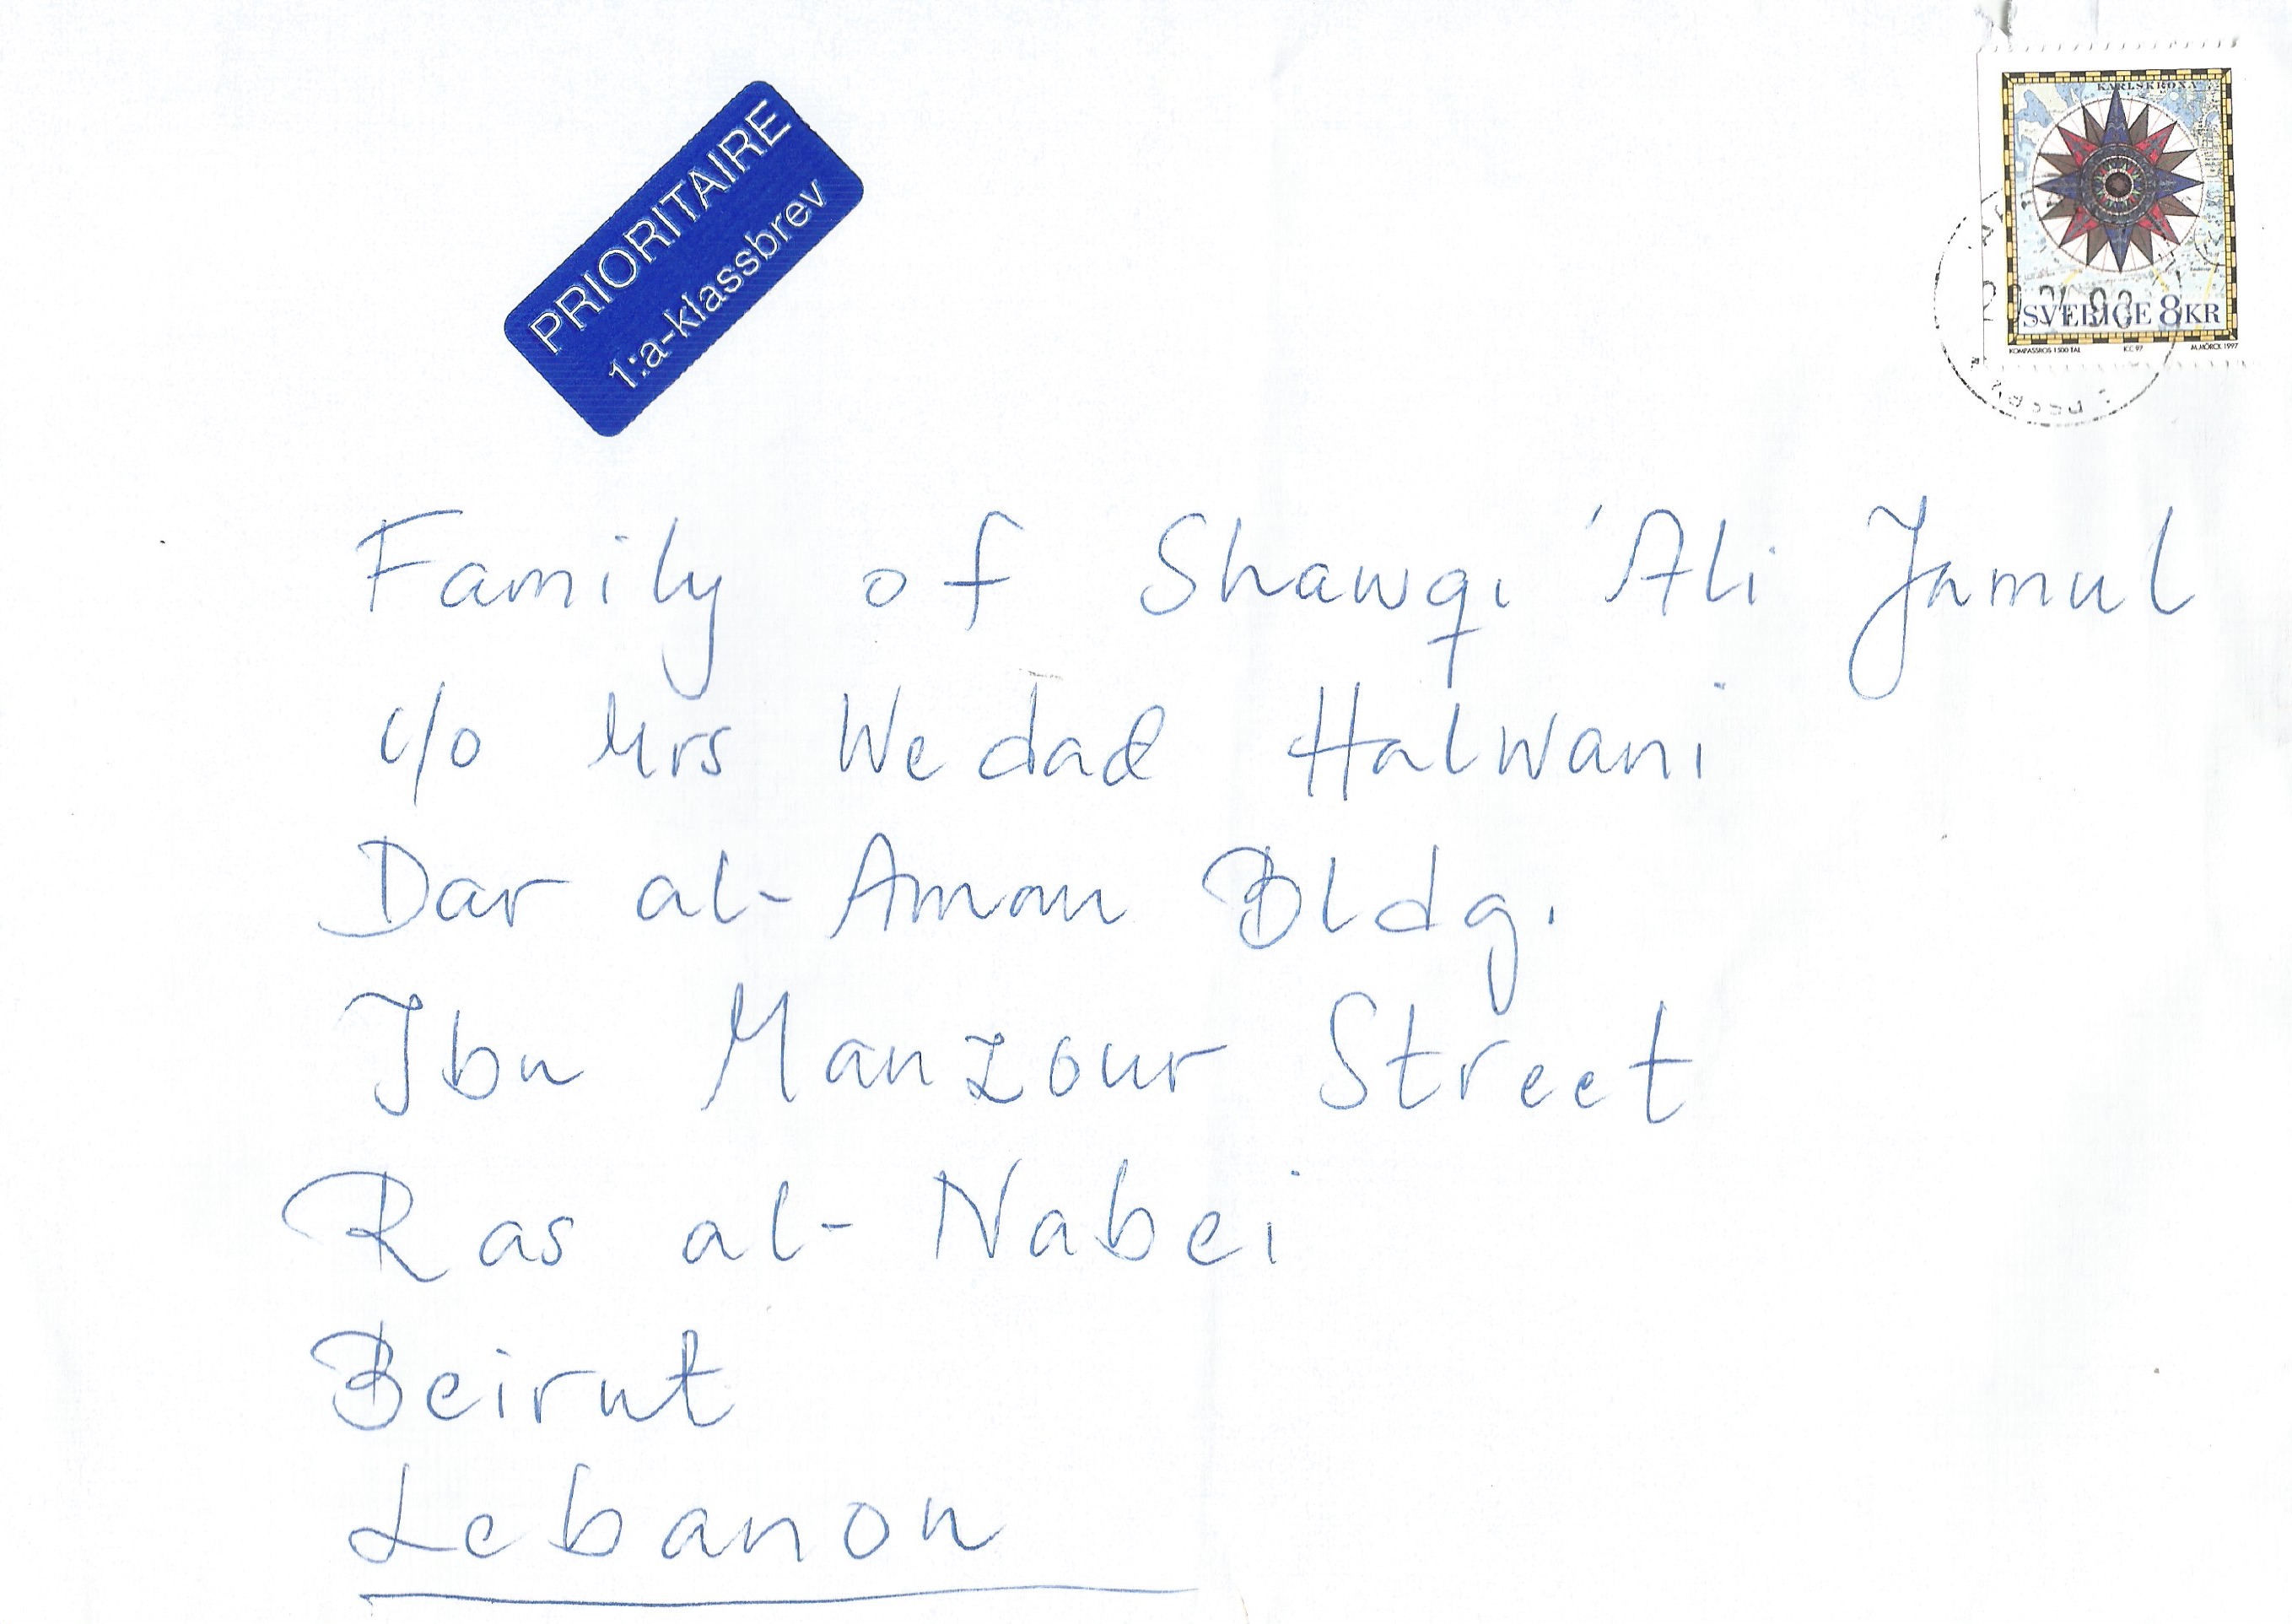 PRIORITAIRE
1:a-klassbrev
KARLSKRONA
SVERIGE 8KR
KOMPASSROS 1500 TAL
M.MÖRCK 1997
Family of Shawqi 'Ali Jamul
c/o Mrs Wedad Halwani
Dar al-Aman Bldg.
Ibn Manzour Street
Ras al-Nabei
Beirut
Lebanon